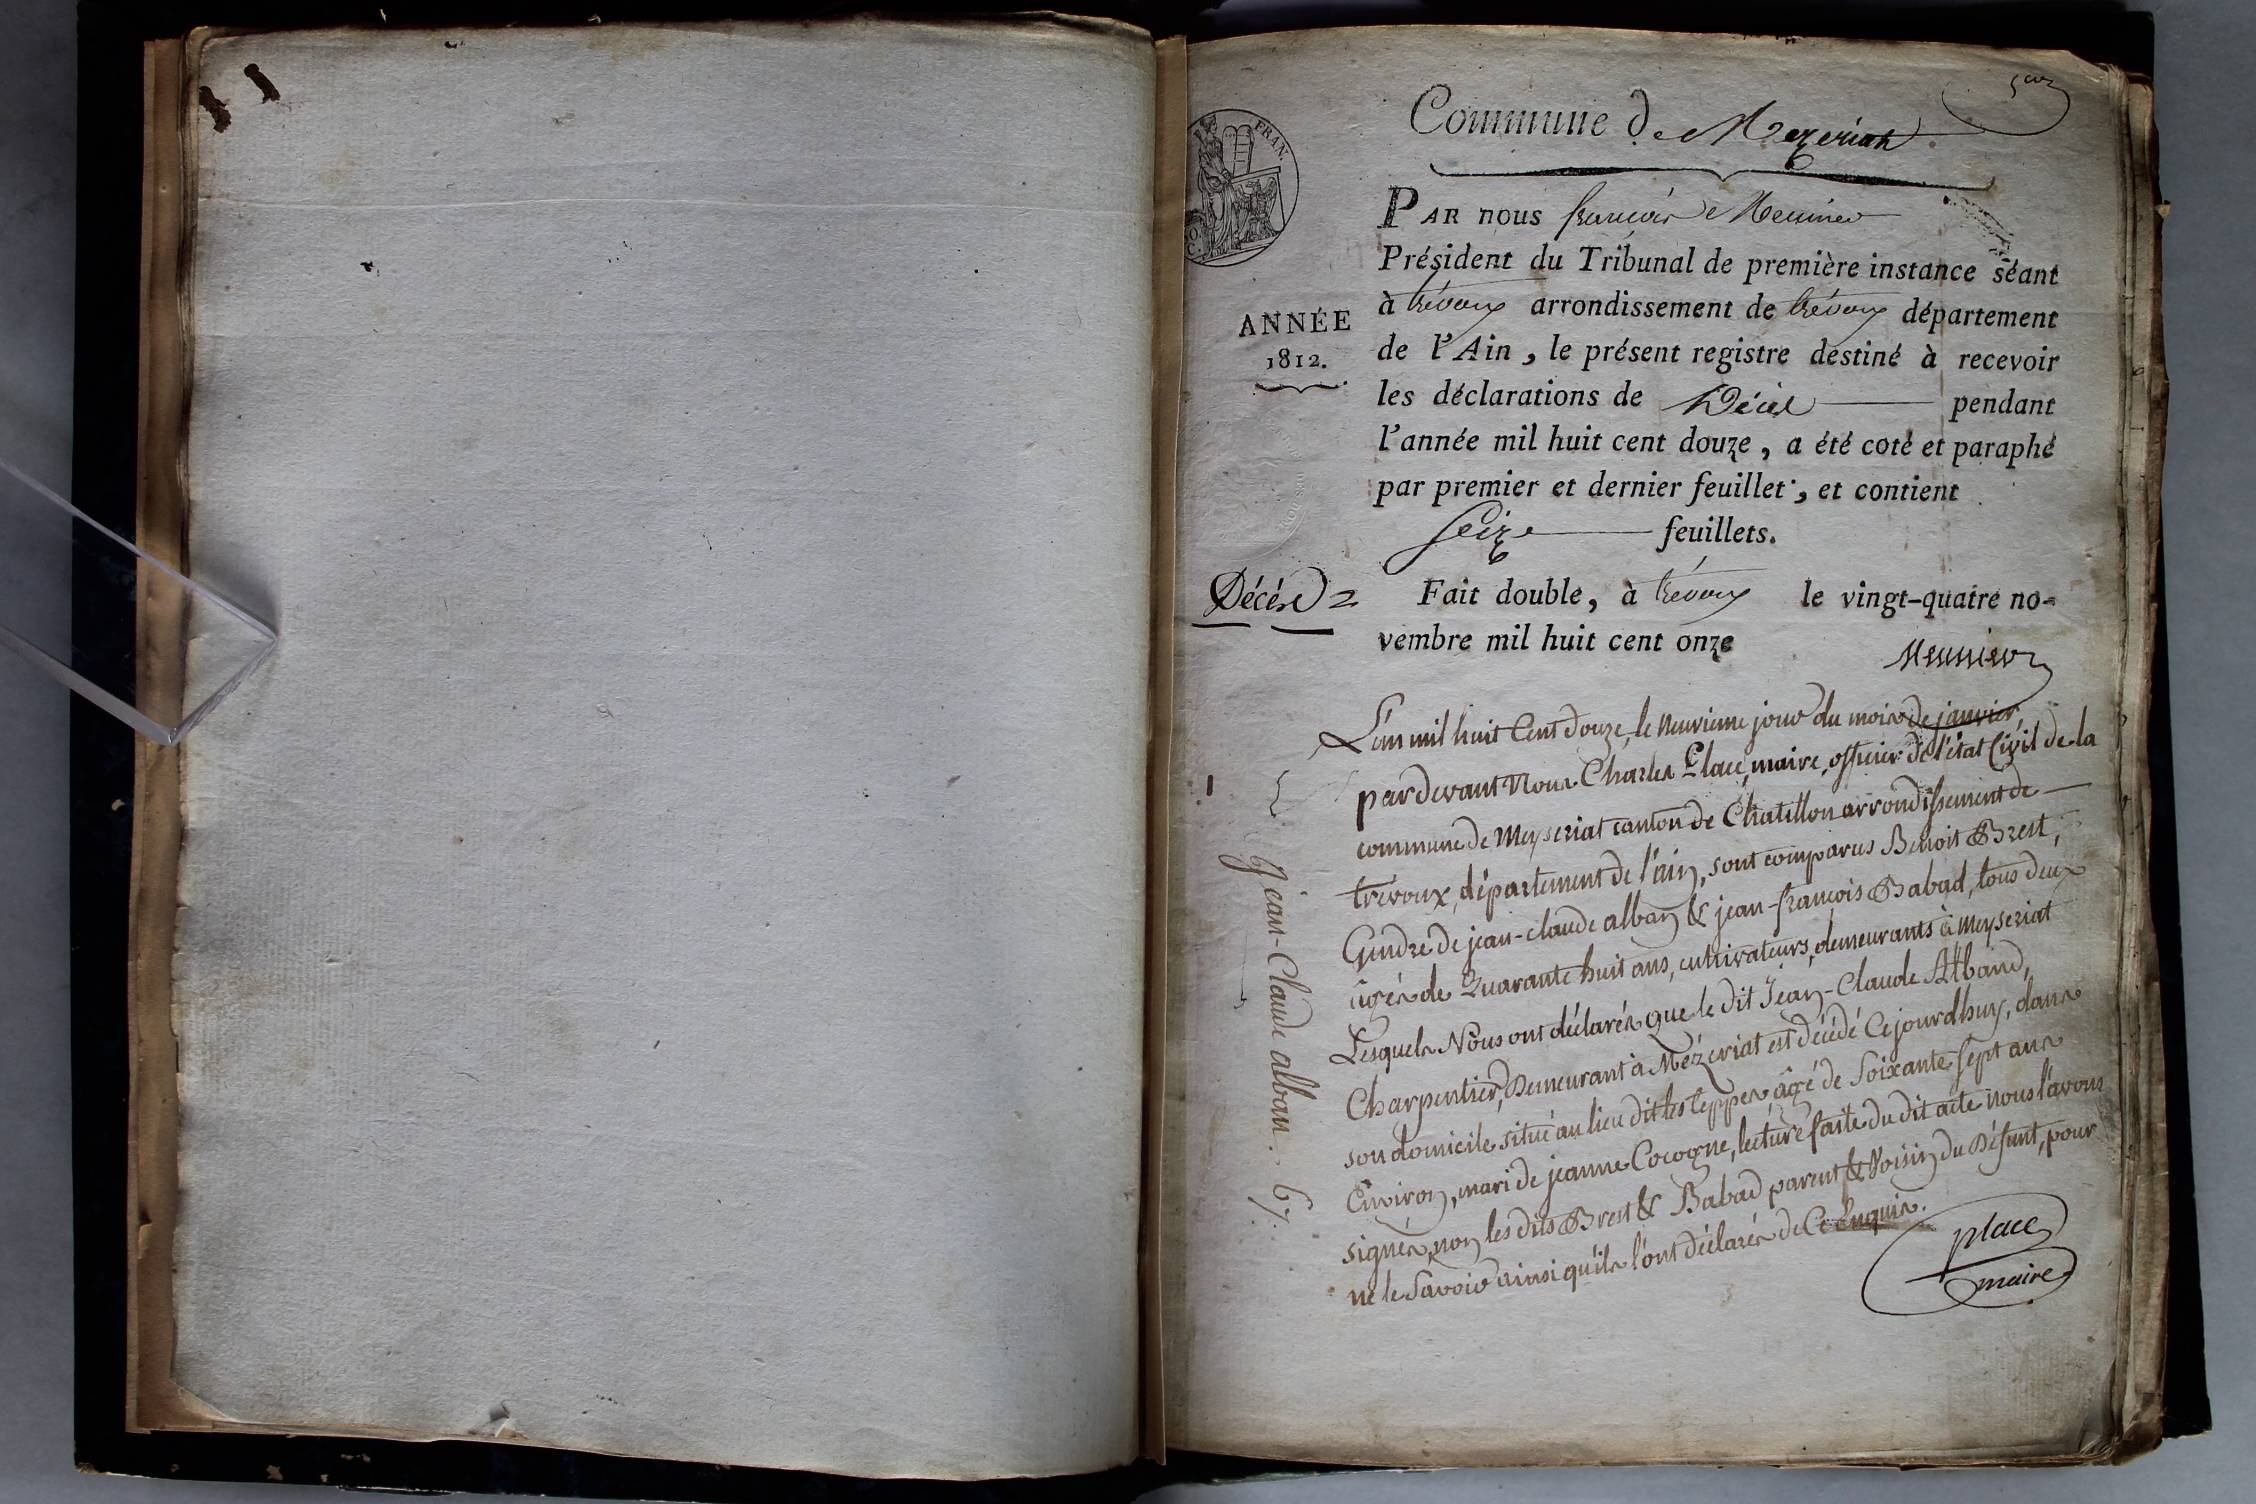 1er
Commune de Mezeriat
FRAN.
PAR nous françois Meunier
Président du Tribunal de première instance séant
à trévoux arrondissement de trévoux département
ANNÉE
1812.
de l'Ain, le présent registre destiné à recevoir
les déclarations de Décès pendant
l'année mil huit cent douze, a été coté et paraphé
par premier et dernier feuillet, et contient
seize feuillets.
Décès
Fait double, à trévoux le vingt-quatre no-
vembre mil huit cent onze
Meunier
L'an mil huit Cent douze, le neuvieme jour du mois de janvier,
pardevant Nous Charles Place, maire, officier de l'état Civil de la
commune de Meyseriat canton de Chatillon arrondissement de
trévoux, département de l'ain, sont comparus Benoit Brest,
Gendre de jean-claude alban & jean-françois Babad, tous deux
âgés de Quarante huit ans, cultivateurs, demeurants à Meyseriat
Lesquels Nous ont déclarés que le dit Jean-Claude Alband,
Charpentier, Demeurant à Mézeriat est décédé Cejourdhuy, dans
son domicile situé au lieu dit les Teppes âgé de Soixante sept ans
Environ, mari de jeanne Cocogne, lecture faite du dit acte nous l'avons
signés, non les dits Brest & Babad parent & Voisin du Défunt, pour
ne le Savoir ainsi qu'ils l'ont déclarés de Ce Enquis.
place
maire
1
jean-Claude alban. 67.